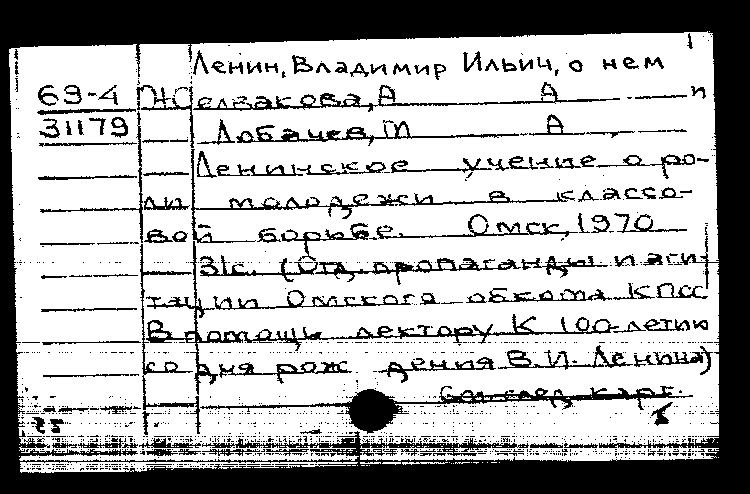 Ленин, Владимир Ильич, о нем
69-4 Желвакова, А А и
31179 Лобачев, М А
Ленинское учение о ро-
ли молодежи в классо-
вой борьбе. Омск, 1970
31с. (Отд. пропаганды и аги-
тации Омского обкома КПСС
В помощь лектору К 100-летию
со дня рож дения В.И. Ленина)
См. след. карт.